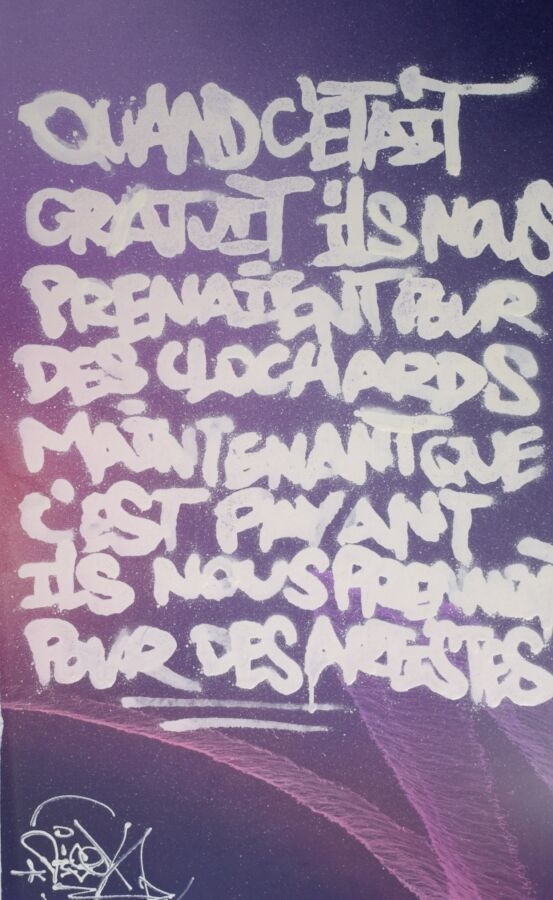 QUAND C'ÉTAIT
GRATUIT ilS NOUS
PRENAIENT POUR
DES CLOCHARDS
MAINTENANT QUE
C'EST PAYANT
ILS NOUS PRENNENT
POUR DES ARTISTES